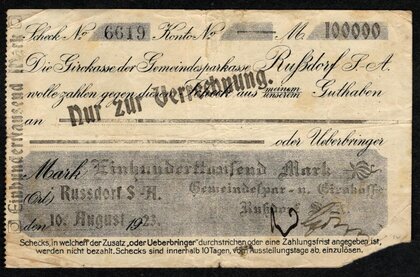 Scheck Nº 6619 Konto Nº — M. 100000
Die Girokasse der Gemeindesparkasse Rußdorf S-A.
wolle zahlen gegen diesen Scheck aus meinem unserem Guthaben
Nur zur Verrechnung.
an
oder Ueberbringer
Mark Einhunderttausend Mark
(Ort) Russdorf S-A. Gemeindespar- u. Girokasse
Rußdorf
den 10. August 1923.
Schecks, in welchem der Zusatz „oder Ueberbringer" durchstrichen oder eine Zahlungsfrist angegeben ist,
werden nicht bezahlt. Schecks sind innerhalb 10 Tagen, vom Ausstellungstage ab, einzulösen.
Einhunderttausend Mark